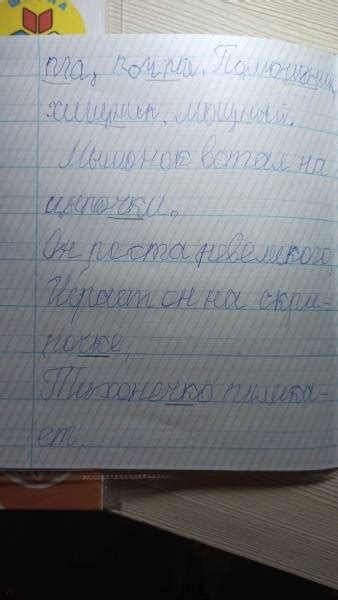 хищник, мощный.
Мышонок встал на
цыпочки.
Он роста невеликого
Играет он на скри-
почке,
Тихонечко пилика-
ет.